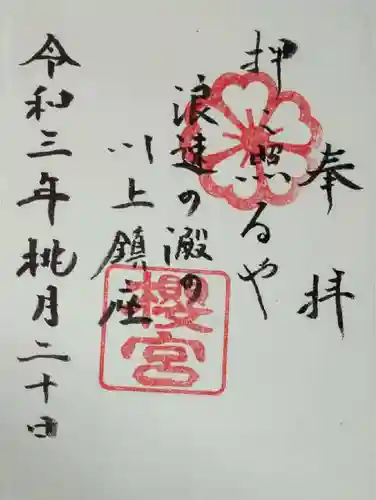 奉拝
押し照るや
浪速の澱の
川上鎮座
櫻宮
令和三年桃月二十日